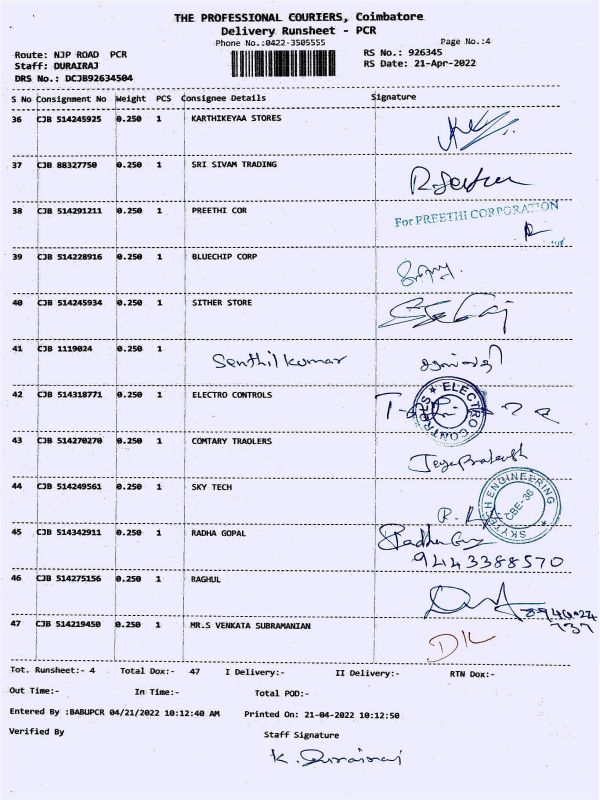 THE PROFESSIONAL COURIERS, Coimbatore
Delivery Runsheet - PCR
Phone No.:0422-3505555 Page No.:4
Route: NJP ROAD PCR RS No.: 926345
Staff: DURAIRAJ RS Date: 21-Apr-2022
DRS No.: DCJB92634504
S No Consignment No Weight PCS Consignee Details Signature
36 CJB 514245925 0.250 1 KARTHIKEYAA STORES
37 CJB 88327750 0.250 1 SRI SIVAM TRADING
38 CJB 514291211 0.250 1 PREETHI COR
For PREETHI CORPORATION
39 CJB 514228916 0.250 1 BLUECHIP CORP
40 CJB 514245934 0.250 1 SITHER STORE
41 CJB 1119024 0.250 1 Senthil kumar
42 CJB 514318771 0.250 1 ELECTRO CONTROLS
ELECTRO CONTROLS
43 CJB 514270270 0.250 1 COMTARY TRAOLERS
JeyaPrakash
44 CJB 514249561 0.250 1 SKY TECH
SKYTECH ENGINEERING
CBE-36
45 CJB 514342911 0.250 1 RADHA GOPAL
9443388570
46 CJB 514275156 0.250 1 RAGHUL
47 CJB 514219450 0.250 1 MR.S VENKATA SUBRAMANIAN
737
Tot. Runsheet:- 4 Total Dox:- 47 I Delivery:- II Delivery:- RTN Dox:-
Out Time:- In Time:- Total POD:-
Entered By :BABUPCR 04/21/2022 10:12:40 AM Printed On: 21-04-2022 10:12:50
Verified By Staff Signature
K. Durairaj